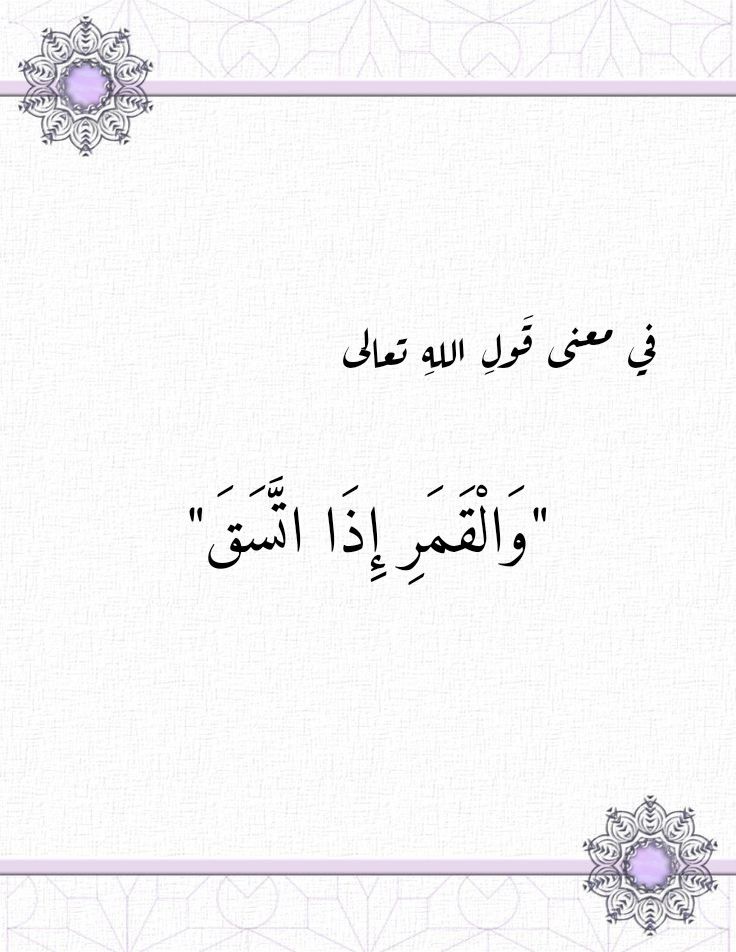 في معنى قَولِ اللهِ تعالى
"وَالْقَمَرِ إِذَا اتَّسَقَ"